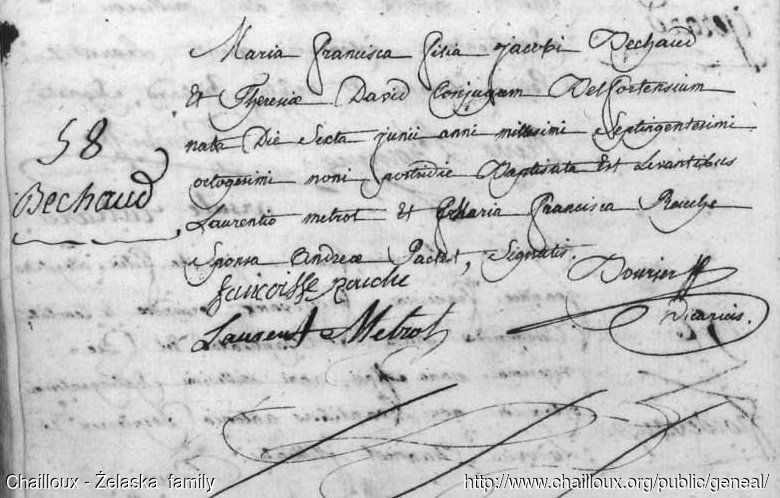 Maria Francisca filia Jacobi Bechaud
et Theresiæ David Conjugum Delfortensium
nata Die Sexta junii anni millesimi Septingentesimi
octogesimi noni postridie Baptisata Est Levantibus
58
Bechaud
Laurentio metrot Et Maria Francisca Rouche
Sponsa Andreæ Pactet, Signatis.
francoisse rouche
Laurent Metrot
Vicarius.
Chailloux - Żelaska family
http://www.chailloux.org/public/geneal/